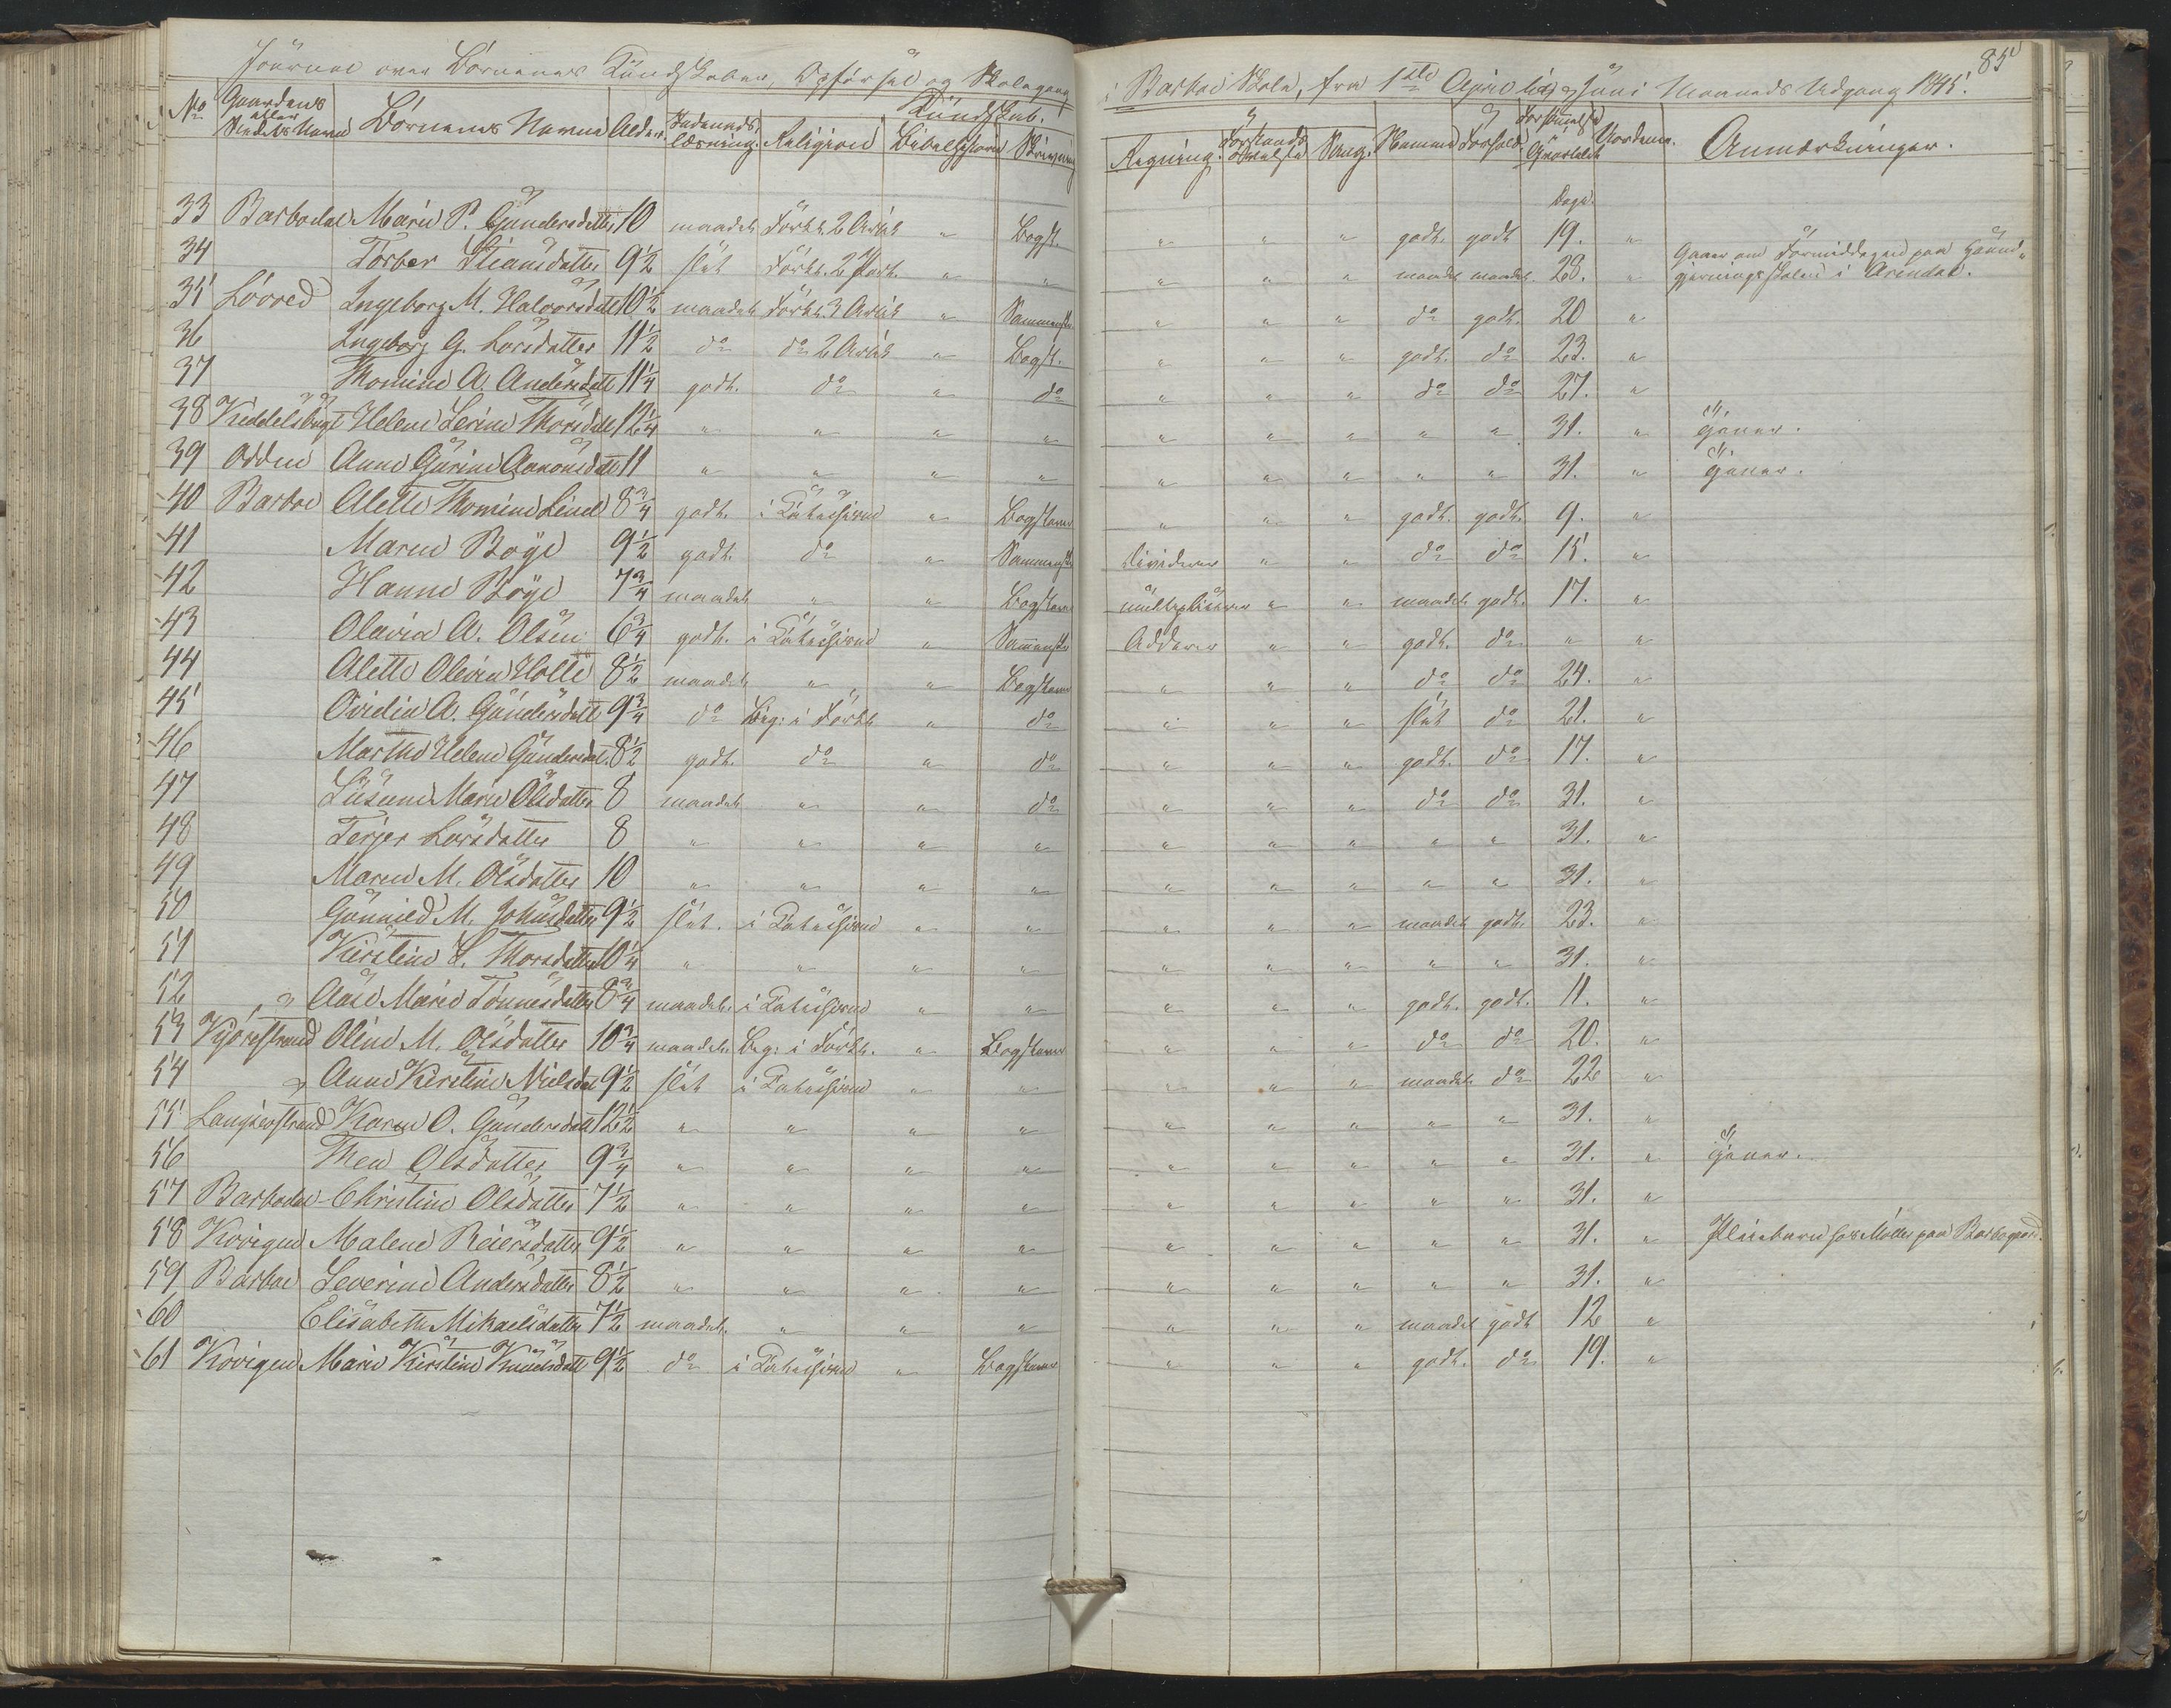 85
Journal over Börnenes Kundskaber, Opförsel og Skolegang i Barboe Skole, fra 1ste April til Juni Maaneds Udgang 1845.
No Gaardens eller Stedets Navn Börnenes Navne Alder Indenads læsning. Kundskab. Religion Bibelhistorie Skrivning Regning. Forstands Övelse Sang. Nemme Forhold. Forsömmelse i Qvartalet Vordene. Anmærkninger.
Dage.
33 Barbodal Marie P. Gundersdatter 10 maadel. Forkl. 2 Artik " Bogst. " " " godt. godt 19. "
34 Torber Stiansdatter 9½ slet Forkl. 2 Part. " " " " " maadel. maadel. 28. " Gaaer om Formiddagen paa Haand-
gjerningsskolen i Arendal.
35 Löved Ingeborg M. Halvorsdatt 10½ maadel. Forkl. 3 Artik " Sammenst. " " " do godt. 20 "
36 Ingeborg G. Larsdatter 11½ do do 2 Artik " Bogst. " " " godt. do 23. "
37 Thomine A. Andersdatt 11¼ godt. do " do " " " do do 27. "
38 Kiddelsbugt Helene Serine Thorsdatt 12¼ " " " " " " " " " 31. " Tjener.
39 Odden Anne Gurine Aanonsdatt 11 " " " " " " " " " 31. " Tjener.
40 Barboe Alette Thomine Lind 8¾ godt. i Katechismen " Bogstaver " " " godt. godt. 9. "
41 Maren Boye 9½ godt. do " Sammenst. dividerer " " do do 15. "
42 Hanne Boye 7¾ maadel. " " Bogstaver multiplicerer " " maadel. godt. 17. "
43 Olavia A. Olsen 6¾ godt. i Katechismen " Sammenst. Adderer " " godt. do " "
44 Alette Olevia Holte 8½ maadel. " " Bogstaver " " " do do 24. "
45 Ovidia A. Gundersdatt 9¾ do Beg: i Forkl. " do " " " slet do 21. "
46 Marthe Helene Gundersdat. 8½ godt. do " do " " " godt. do 17. "
47 Susanne Marie Olsdatter 8 maadel. " " do " " " do do 31. "
48 Terjer Larsdatter 8 " " " " " " " " " 31. "
49 Maren M. Olsdatter 10 " " " " " " " " " 31. "
50 Gunnild M. Johnsdatter 9½ slet. i Katechismen " " " " " maadel. godt. 23. "
51 Kirstine S. Thorsdatter 10¼ " " " " " " " " " 31. "
52 " Aase Marie Tönnesdatter 8¾ maadel. i Katechismen " " " " " godt. godt. 11. "
53 Kjörestrand Oline M. Olsdatter 10¾ maadel. Beg: i Forkl. " Bogstaver " " " do do 20. "
54 " Anne Kirstine Nielsdat 9½ slet i Katechismen " " " " " maadel. do 22 "
55 Langsæstrand Karen O. Gundersdatt 12½ " " " " " " " " " 31. "
56 Thea Olsdatter 9¾ " " " " " " " " " 31. " Tjener.
57 Barbodal Christine Olsdatter 7½ " " " " " " " " " 31. "
58 Kovigen Malene Reiersdatter 9½ " " " " " " " " " 31. " Pleiebarn hos Möller paa Barbogaard.
59 Barboe Severine Andersdatter 8½ " " " " " " " " " 31. "
60 Elisabeth Mikaelsdatter 7½ maadel. " " " " " " maadel godt 12 "
61 Kovigen Marie Kirstine Knudsdatt 9½ do i Katechismen " Bogstaver " " " godt. do 19. "